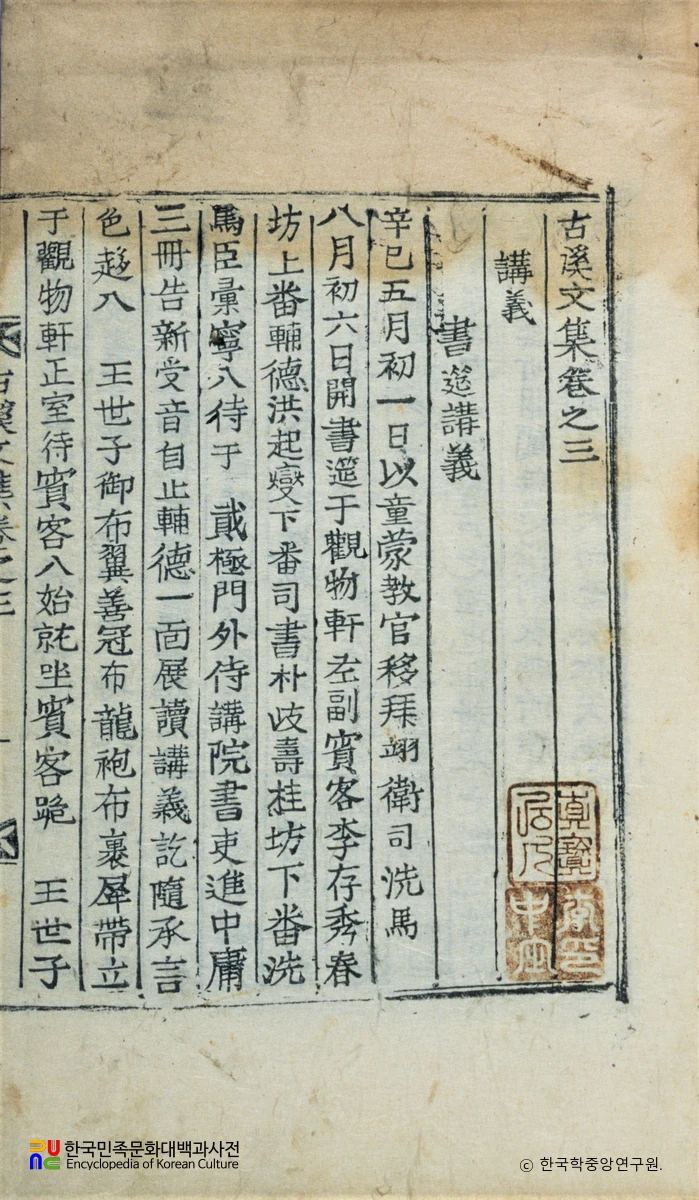 古溪文集卷之三
講義
書筵講義
辛巳五月初一日以童蒙教官移拜翊衛司洗馬
八月初六日開書筵于觀物軒左副賓客李存秀春
坊上番輔德洪起燮下番司書朴岐壽桂坊下番洗
馬臣彙寧入待于 貳極門外侍講院書吏進中庸
三冊告新受音自止輔德一面展讀講義訖隨承言
色趍入 王世子御布翼善冠布龍袍布裹犀帶立
于觀物軒正室待賓客入始就坐賓客跪 王世子
古溪文集卷之三
真寶
居人
李
中
한국민족문화대백과사전
Encyclopedia of Korean Culture
ⓒ 한국학중앙연구원.